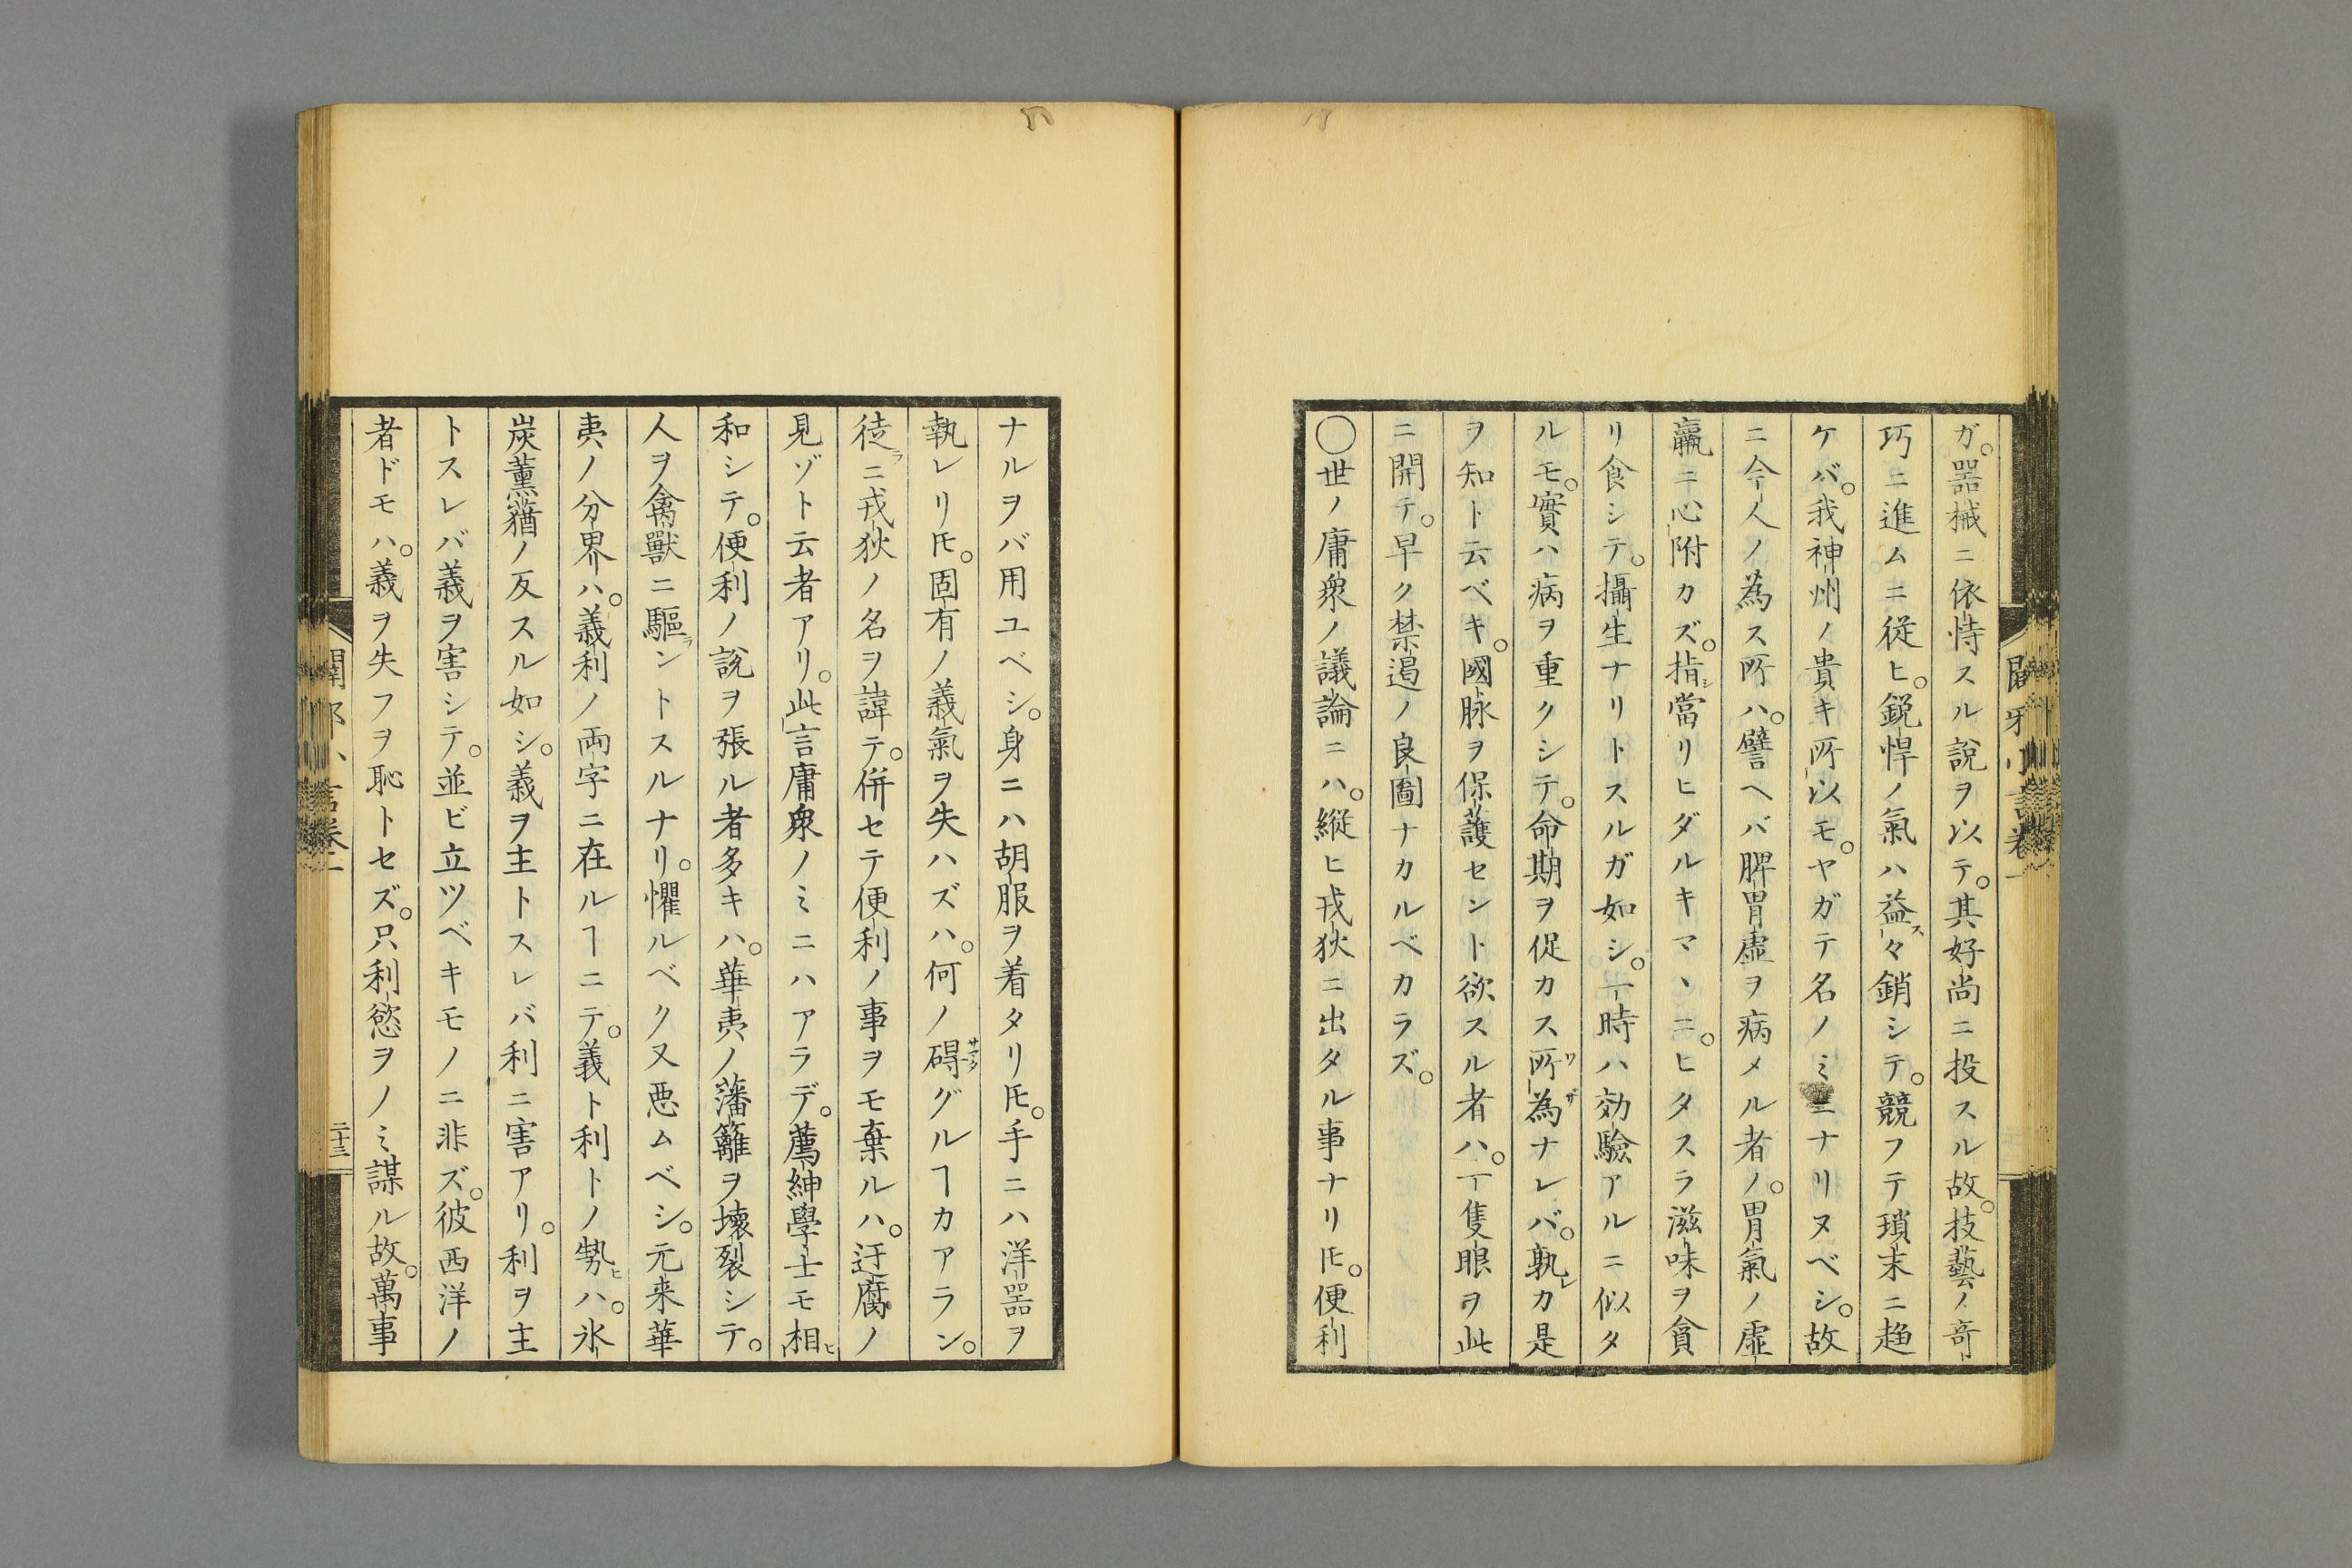 ガ。器械ニ依恃スル說ヲ以テ。其好尚ニ投スル故。技藝ノ奇
巧ニ進ムニ従ヒ。鋭悍ノ氣ハ益々銷シテ。競フテ瑣末ニ趋
ケバ。我神州ノ貴キ所以モ。ヤガテ名ノミニナリヌベシ。故
ニ今人ノ為ス所ハ。譬ヘバ脾胃虚ヲ病メル者ノ。胃氣ノ虚
羸ニ心附カズ。指當リヒダルキマヽニ。ヒタスラ滋味ヲ貪
リ食シテ。攝生ナリトスルガ如シ。一時ハ効驗アルニ似タ
ルモ。實ハ病ヲ重クシテ。命期ヲ促カス所為ナレバ。孰カ是
ヲ知ト云ベキ。國脉ヲ保護セント欲スル者ハ。一隻眼ヲ此
ニ開テ。早ク禁遏ノ良圖ナカルベカラズ。
〇世ノ庸衆ノ議論ニハ。縦ヒ戎狄ニ出タル事ナリ𪜈。便利
ナルヲバ用ユベシ。身ニハ胡服ヲ着タリ𪜈。手ニハ洋器ヲ
執レリ𪜈。固有ノ義氣ヲ失ハズハ。何ノ碍グルヿカアラン。
徒ニ戎狄ノ名ヲ諱テ。併セテ便利ノ事ヲモ棄ルハ。迂腐ノ
見ゾト云者アリ。此言庸衆ノミニハアラデ。薦紳學士モ相
和シテ。便利ノ說ヲ張ル者多キハ。華夷ノ藩籬ヲ壊裂シテ。
人ヲ禽獸ニ驅ントスルナリ。懼ルベク又悪ムベシ。元来華
夷ノ分界ハ。義利ノ両字ニ在ルヿニテ。義ト利トノ勢ハ。氷
炭薫蕕ノ反スル如シ。義ヲ主トスレバ利ニ害アリ。利ヲ主
トスレバ義ヲ害シテ。並ビ立ツベキモノニ非ズ。彼西洋ノ
者ドモハ。義ヲ失フヲ恥トセズ。只利慾ヲノミ謀ル故。萬事
二十三